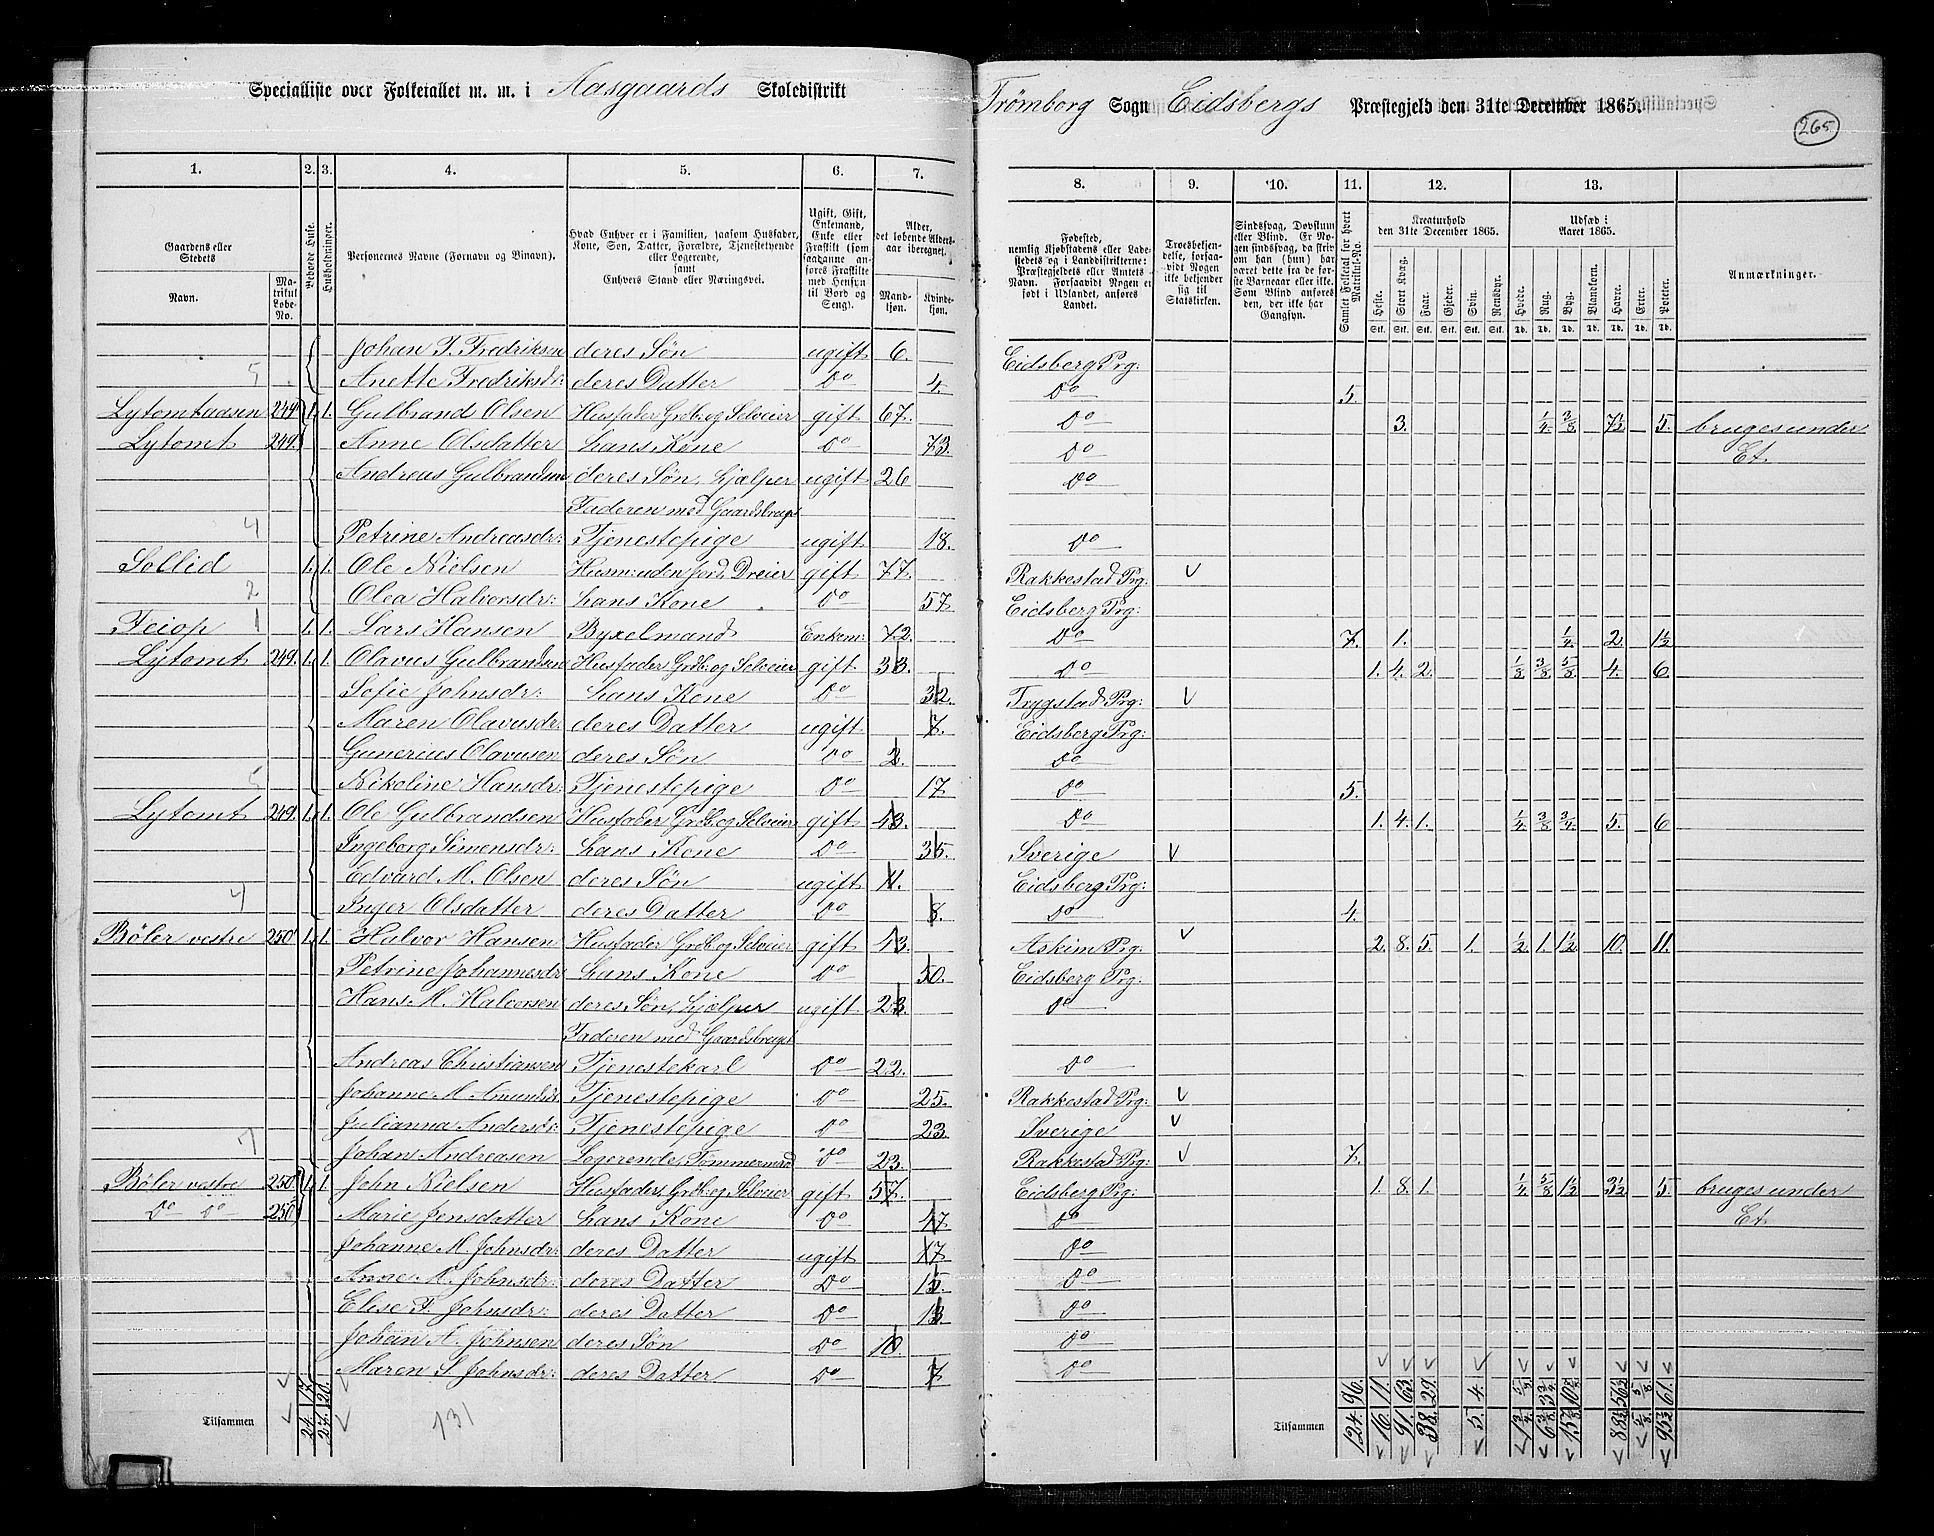 Specialliste over Folketallet m. m. i Aasgaards Skoledistrikt Trömborg Sogn Eidsbergs Præstegjeld den 31te December 1865.
265
1. 2. 3. 4. 5. 6. 7. 8. 9. 10. 11. 12. 13.
Gaardens eller Stedets Navn. Matrikul Løbe-No. Beboede Huse. Husholdninger. Personernes Navne (Fornavn og Binavn).
Hvad Enhver er i Familien, saasom Husfader, Kone, Søn, Datter, Forældre, Tjenestetyende eller Logerende, samt Enhvers Stand eller Næringsvei.
Ugift, Gift, Enkemand, Enke eller Fraskilt (som saadanne anføres Fraskilte med Hensyn til Bord og Seng).
Alder, det løbende Aldersaar iberegnet. Mandkjøn. Kvindekjøn.
Fødested, nemlig Kjøbstadens eller Ladestedets og i Landdistrikterne: Præstegjeldets eller Amtets Navn. Forsaavidt Nogen er født i Udlandet, anføres Landet.
Troesbekjendelse, forsaavidt Nogen ikke bekjender sig til Statskirken.
Sindssvag, Døvstum eller Blind. Er Nogen sindssvag, da skriv om han (hun) har været dette fra de første Barneaar eller ikke. Som Blind anføres den, der ikke har Gangsyn.
Samlet Folketal for hvert Matrikul-No.
Kreaturhold den 31te December 1865. Heste. Stort Kvæg. Faar. Gjeder. Svin. Rensdyr.
Udsæd i Aaret 1865. Hvede. Rug. Byg. Blandkorn. Havre. Erter. Poteter.
Anmærkninger.
Johan F. Fredriksen deres Søn ugift 6. Eidsberg Prg:
5 Anette Fredriksdr: deres Datter Do 4. Do 5.
Lytomtadsen 249 1. 1. Gulbrand Olsen Husfader Grdb. og Selveier gift 67. Do 3. 1/4 3/8 7 1/2 5. bruges under
Lytomt 249. Anne Olsdatter hans Kone Do 73. Do Et.
Andreas Gulbrandsen deres Søn, hjælper ugift 26 Do
Faderen med Gaardsbruget
4 Petrine Andreasdr: Tjenestepige ugift 18. Do
Sollid 1. 1. Ole Nielsen Husm: uden Jord, Dreier gift 77. Rakkestad Prg:
2 Olea Halvorsdr: hans Kone Do 57 Eidsberg Prg:
Feiop 1 1. 1. Lars Hansen Enkem: 72. Do 7. 1. 1/4 2. 1 1/2
Lytomt 249. 1. 1. Olavus Gulbrandsen Husfader Grdb. og Selveier gift 33. Do 1. 4. 2. 1/8 3/8 5/8 4. 6.
Sofie Johnsdr: hans Kone Do 32. Trygstad Prg:
Maren Olavusdr: deres Datter ugift 7. Eidsberg Prg:
Gunerius Olavusen deres Søn Do 2. Do
5 Nikoline Hansdr: Tjenestepige Do 17 Do 5.
Lytomt 249. 1. 1. Ole Gulbrandsen Husfader Grdb. og Selveier gift 43. Do 1. 4. 1. 1/4 3/8 3/4 5. 6
Ingeborg Simensdr: hans Kone Do 35. Sverige
Edvard M. Olsen deres Søn ugift 11. Eidsberg Prg:
4 Inger Olsdatter deres Datter Do 8. Do 4.
Böler vestre 250 1. 1. Halvor Hansen Husfader Grdb. og Selveier gift 43. Askim Prg: 2. 8. 5. 1. 1/2 1. 1 1/2 10. 11.
Petrine Johannesdr hans Kone Do 50. Eidsberg Prg:
Hans M. Halvorsen deres Søn, hjælper ugift 23. Do
Faderen med Gaardsbruget
Andreas Christiansen Tjenestekarl Do 22. Do
Johanne M. Amundsdr Tjenestepige Do 25. Rakkestad Prg:
Julianna Andersdr: Tjenestepige Do 23. Sverige
7 Johan Andreasen Logerende, Tømmermand Do 23. Rakkestad Prg: 7.
Böler vestre 250 1. 1. John Nielsen Husfader Grdb. og Selveier gift 57. Eidsberg Prg: 1. 8. 1. 1/4 5/8 1 1/2 3 1/2 5. bruges under
Do Do 250 Marie Jensdatter hans Kone Do 47 Do Et.
Johanne M. Johnsdr: deres Datter ugift 17 Do
Anne M. Johnsdr: deres Datter Do 15. Do
Elise F. Johnsdr: deres Datter Do 13 Do
Johan A. Johnsen deres Søn Do 10. Do
Maren S. Johnsdr: deres Datter Do 7 Do
17. 20. 96. 11. 63. 29. 4. 61.
Tilsammen 24. 27. 131 Tilsammen 124 16. 91. 38. 5.